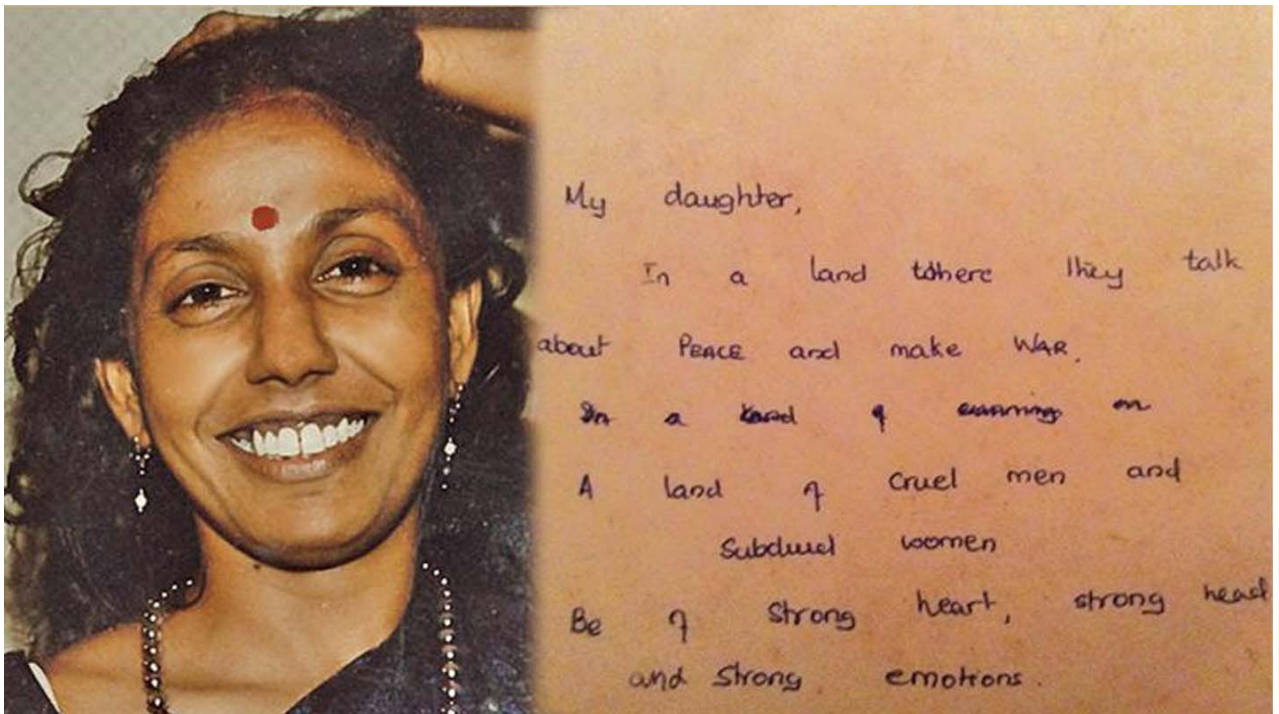 My daughter,
In a land where they talk
about PEACE and make WAR.
In a land of on
A land of cruel men and
Subdued women
Be of strong heart, strong head
and strong emotions.